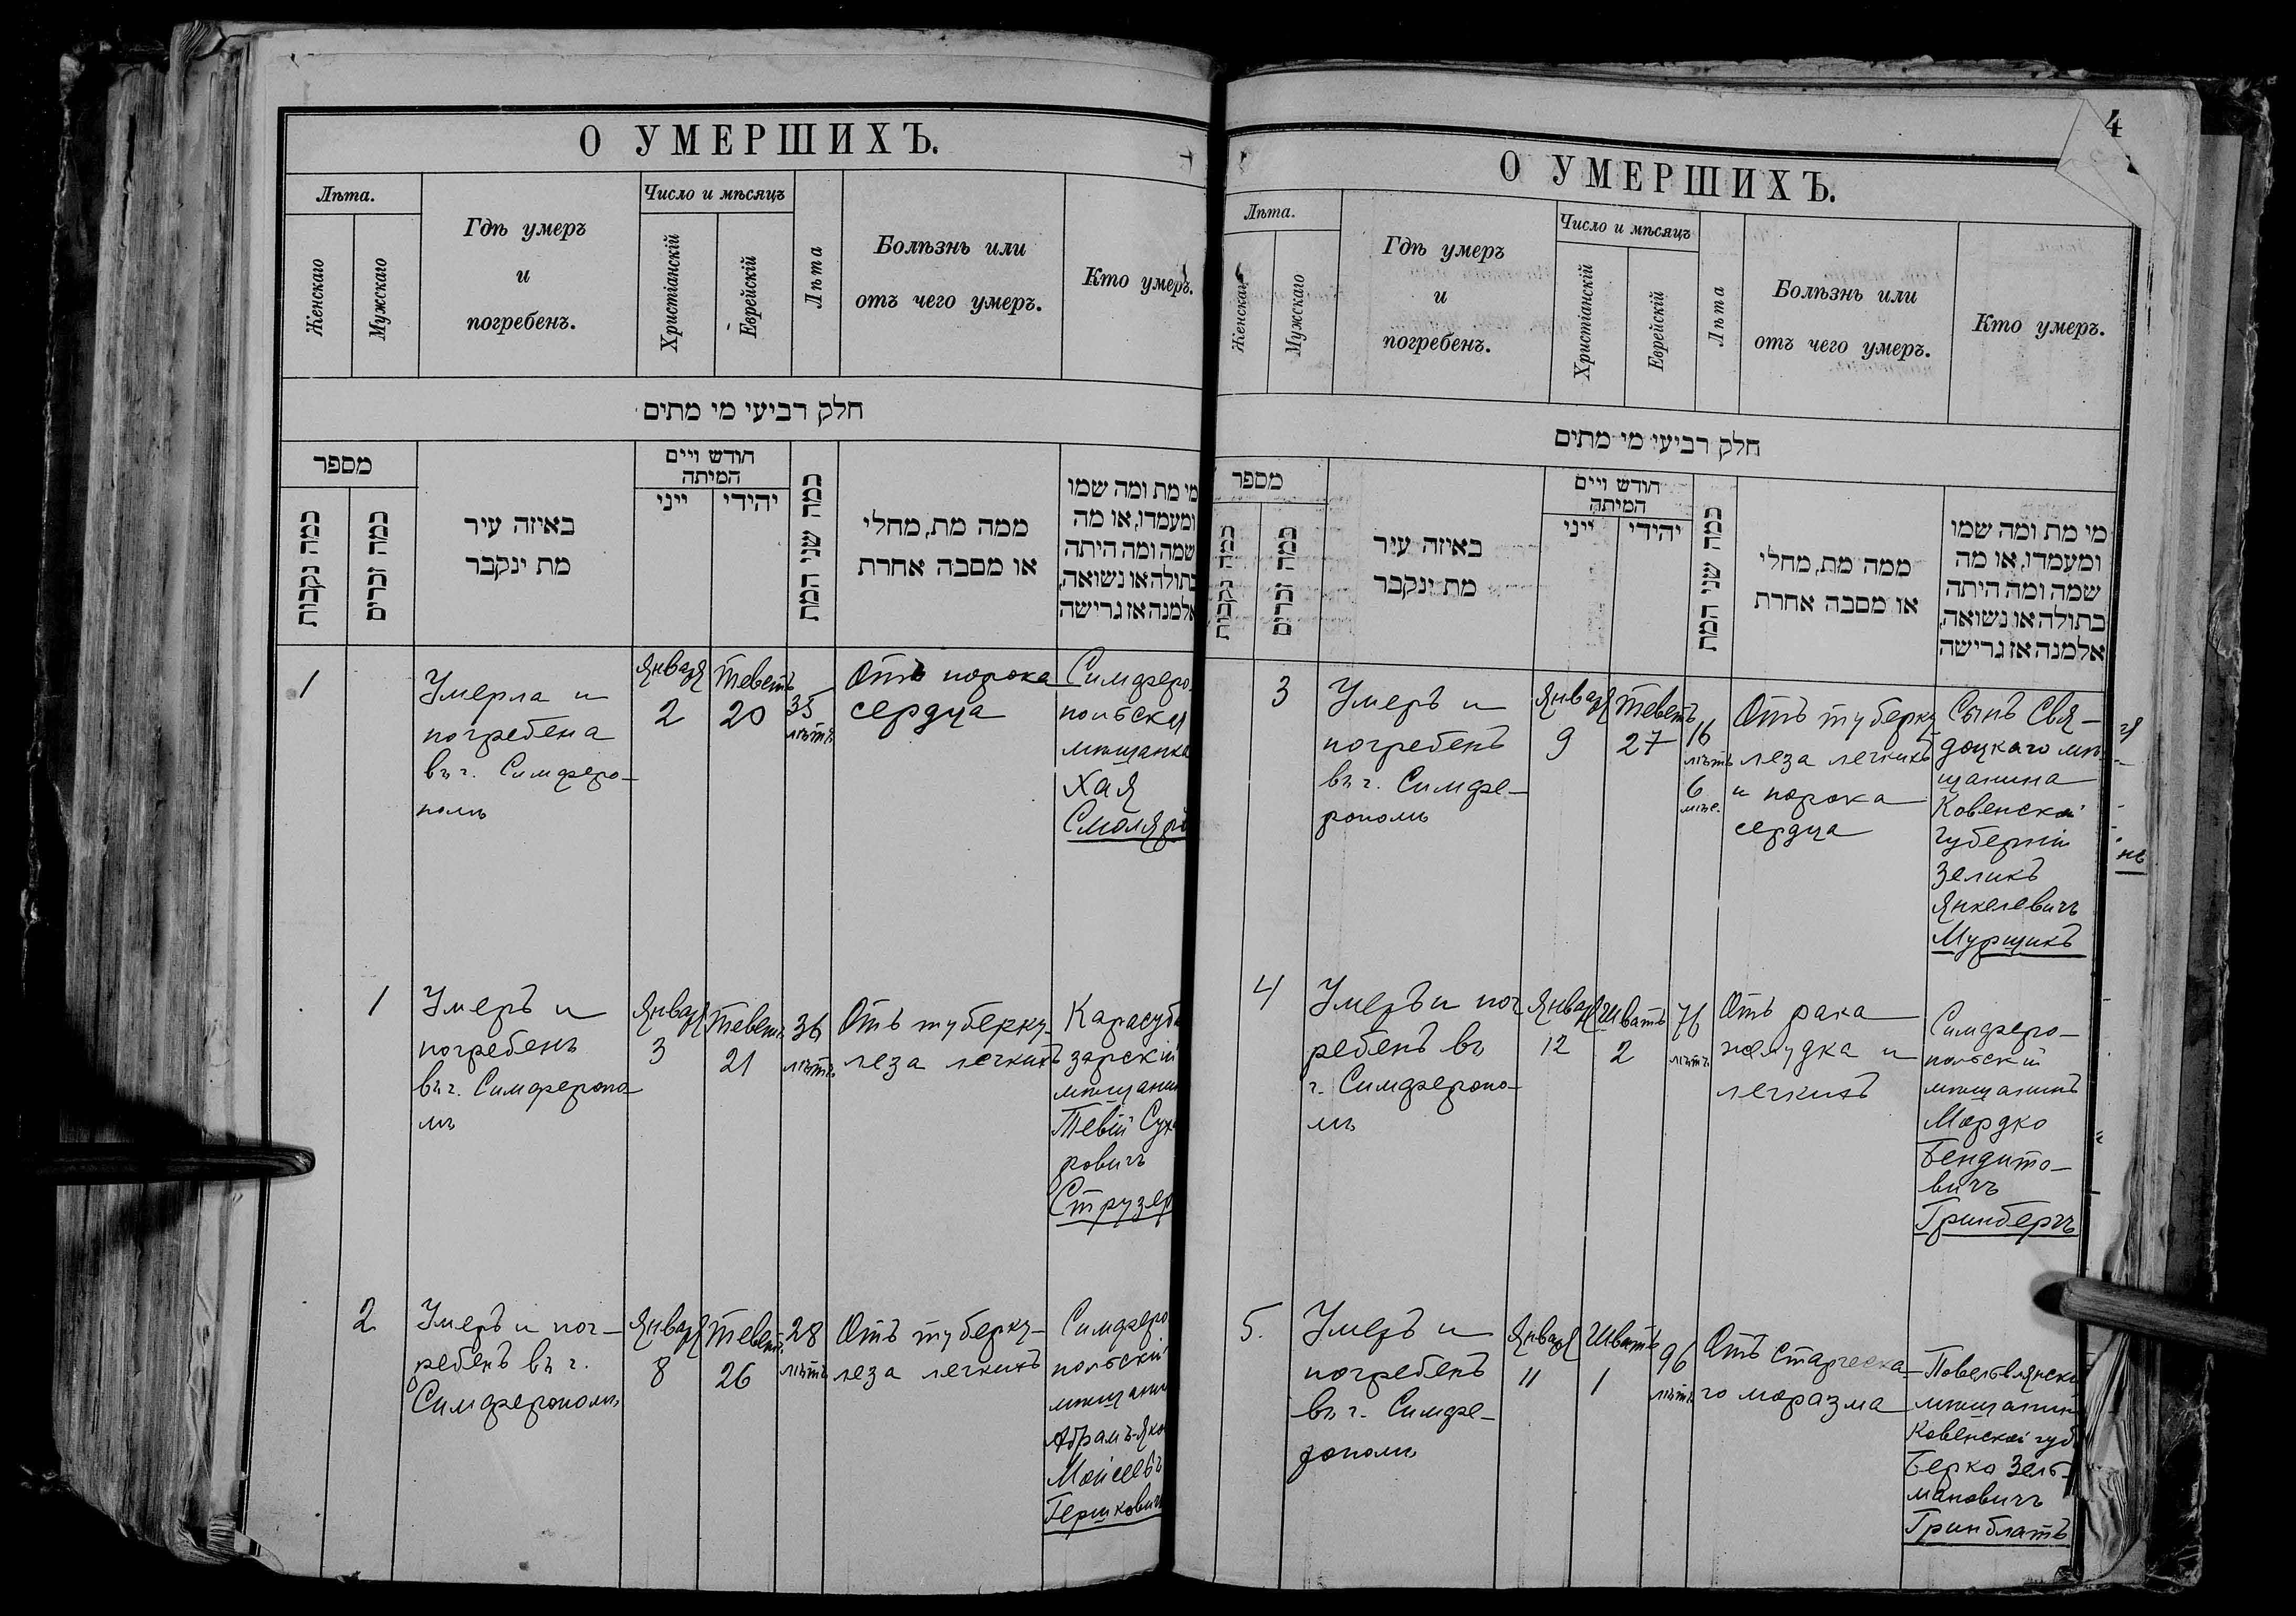 О УМЕРШИХЪ.
Лѣта.
Женскаго
Мужскаго
Гдѣ умеръ
и
погребенъ.
Число и мѣсяцъ
Христіанскій
Еврейскій
Лѣта
Болѣзнь или
отъ чего умеръ.
Кто умеръ.
חלק רביעי מי מתים
מספר
כמה נקבות
כמה זכרים
באיזה עיר
מת ינקבר
חודש ויים
המיתה
ייני
יהידי
כמה שני המת
ממה מת, מחלי
או מסבה אחרת
מי מת ומה שמו
ומעמדו, או מה
שמה ומה היתה
בתולה או נשואה,
אלמנה אז גרישה
1
Умерла и
погребена
въ г. Симферо-
полѣ
Января
2
Теветъ
20
35
лѣтъ
Отъ порока
сердца
Симферо-
польская
мѣщанка
Хая
Смоляр
1
Умеръ и
погребенъ
въ г. Симферопо-
лѣ
Января
3
Теветъ
21
36
лѣтъ
Отъ туберку-
леза легкихъ
Карасуба
зарскій
мѣщанин
Тевій
ровичъ
Струзер
2
Умеръ и пог-
ребенъ въ г.
Симферополѣ
Января
8
Теветъ
26
28
лѣтъ
Отъ туберку-
леза легкихъ
Симферо
польскій
мѣщанин
Абрамъ-Яко
Мойсеевъ
Гершковичъ
4
О УМЕРШИХЪ.
Лѣта.
Женскаго
Мужскаго
Гдѣ умеръ
и
погребенъ.
Число и мѣсяцъ
Христіанскій
Еврейскій
Лѣта
Болѣзнь или
отъ чего умеръ.
Кто умеръ.
חלק רביעי מי מתים
מספר
כמה נקבות
כמה זכרים
באיזה עיר
מת ינקבר
חודש ויים
המיתה
ייני
יהידי
כמה שני המת
ממה מת, מחלי
או מסבה אחרת
מי מת ומה שמו
ומעמדו, או מה
שמה ומה היתה
בתולה או נשואה,
אלמנה אז גרישה
3
Умеръ и
погребенъ
въ г. Симфе-
рополѣ
Января
9
Теветъ
27
16
лѣтъ
6
мѣс.
Отъ туберку
леза легкихъ
и порока
сердца
Сынъ Свя-
доцкаго мѣ-
щанина
Ковенской
губерніи
Зеликъ
Янкелевичъ
Мурщикъ
4
Умеръ и пог
ребенъ въ
г. Симферопо-
лѣ
Января
12
Шватъ
2
76
лѣтъ
Отъ рака
желудка и
легкихъ
Симферо-
польскій
мѣщанинъ
Мордко
Бендито-
вичъ
Гринбергъ
5.
Умеръ и
погребенъ
въ г. Симфе-
рополѣ
Января
11
Шватъ
1
96
лѣтъ
Отъ старческа-
го маразма
Повельвянскі
мѣщанин
Ковенской губ
Берко Зель-
мановичъ
Гринблатъ